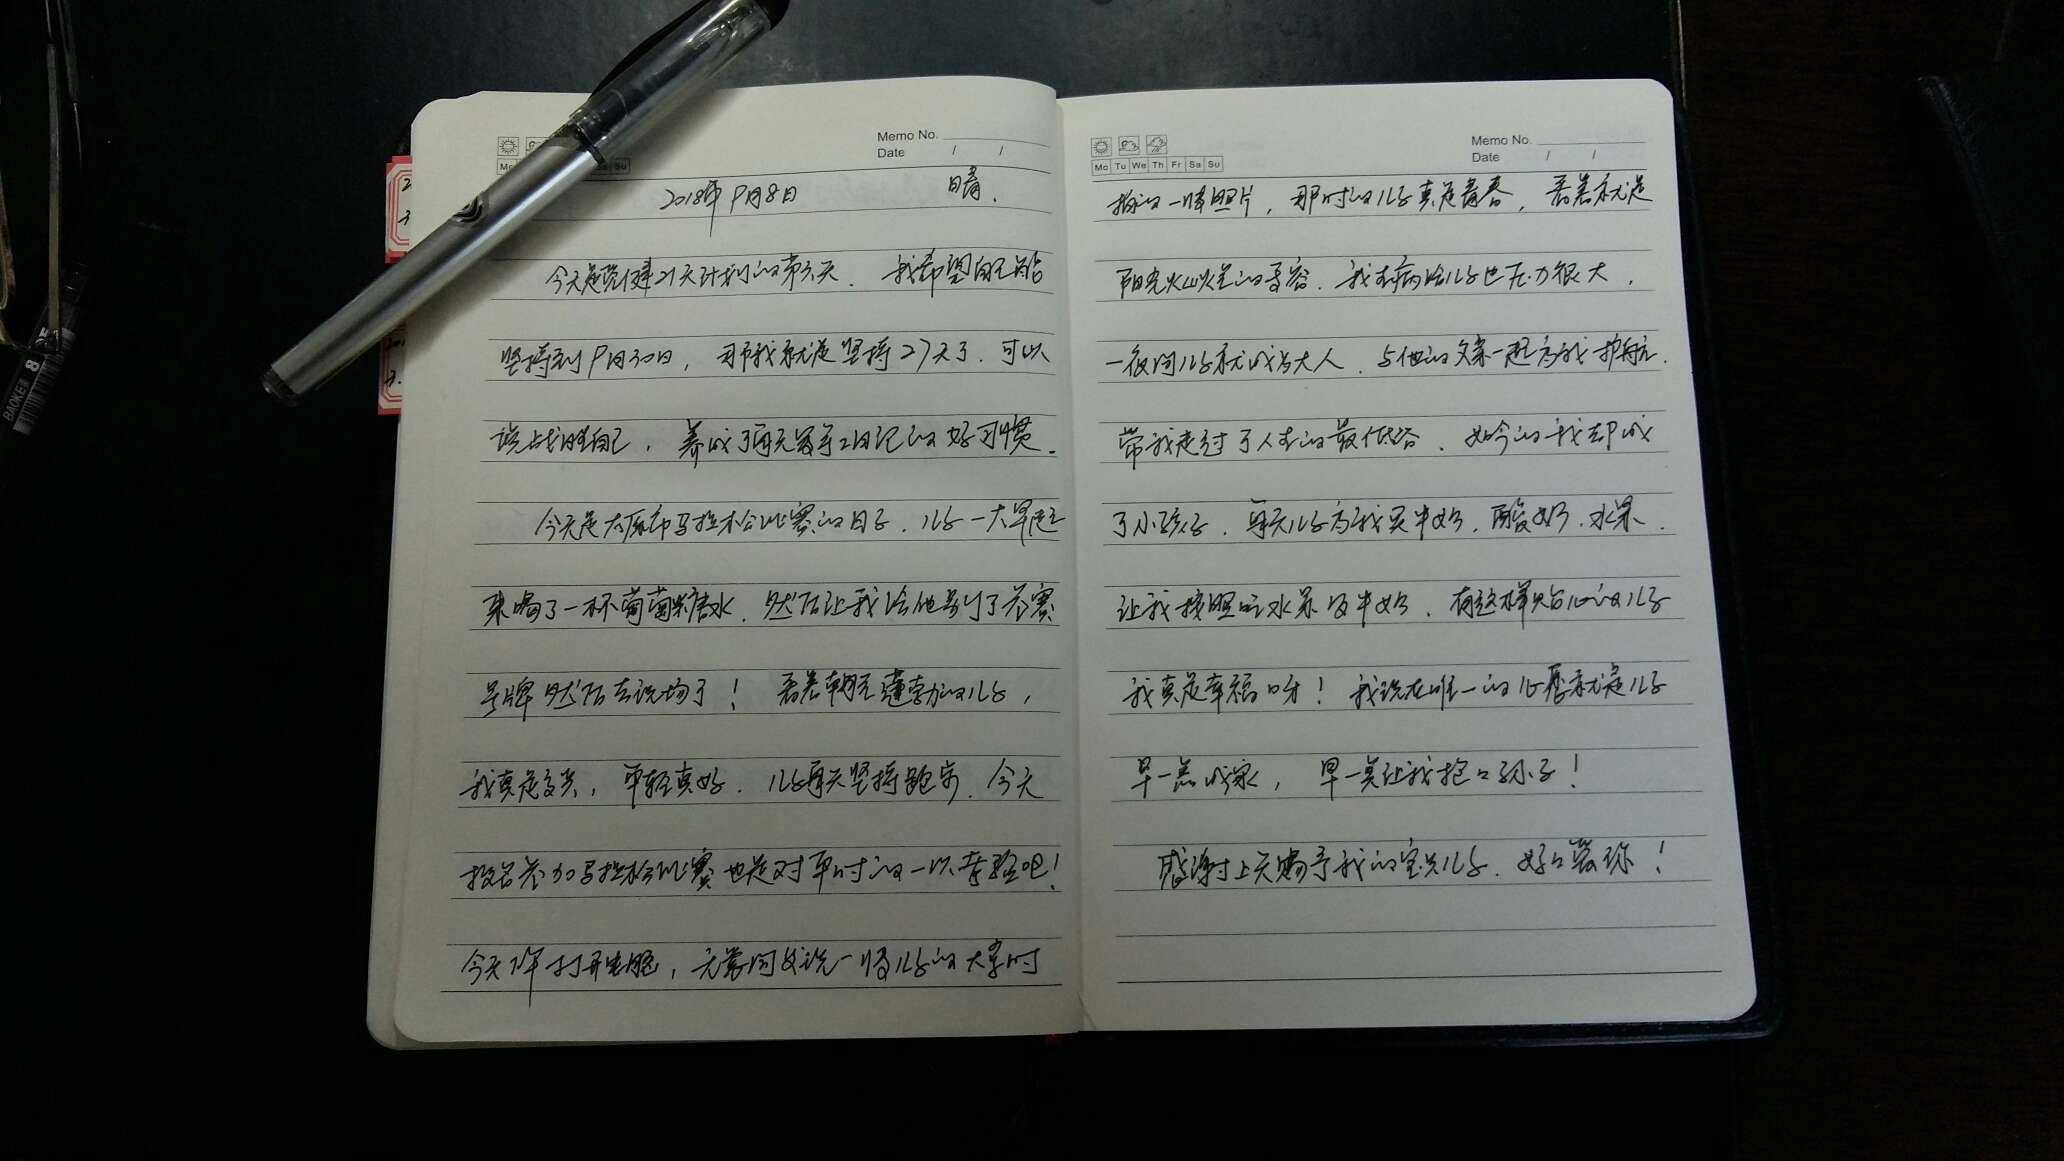 Memo No.
Date / /
Su
2018年9月8日 晴.
今天是 21天计划的第六天. 我希望自己能
坚持到9月30日, 那我就是坚持27天了. 可以
说战胜自己, 养成了每天写手工日记的好习惯.
今天是太原市马拉松比赛的日子. 儿子一大早起
来喝了一杯葡萄糖水. 然后让我给他别了参赛
号牌然后去现场了! 看着朝气蓬勃的儿子,
我真是 , 年轻真好. 儿子每天坚持跑步. 今天
报名参加马拉松比赛也是对平时的一次考验吧!
今天 打开电脑, 无意间发现一张儿子的大学时
Memo No.
Date / /
Mo Tu We Th Fr Sa Su
拍的一张照片, 那时的儿子真是青春, 看着就是
阳光 的 容. 我生病给儿子压力很大,
一夜间儿子就成为大人. 与他的父亲一起为我护航.
带我走过了人生的最低谷. 如今的我却成
了小孩子. 每天儿子为我买牛奶, 酸奶. 水果.
让我按照吃水果及牛奶. 有这样贴心的儿子
我真是幸福呀! 我现在唯一的心愿就是儿子
早一点成家, 早一点让我抱抱孙子!
感谢上天赐予我的宝贝儿子. 妈妈爱你!
BAOKE
8